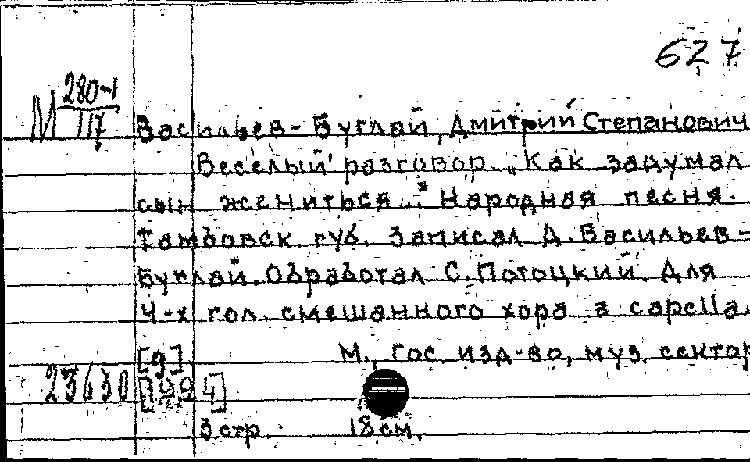 627
М 280-1
III
Васильев-Буглай, Дмитрий Степанович
Веселый разговор. „Как задумал
сын жениться..." Народная песня.
Тамбовск. губ. Записал Д. Васильев-
Буглай. Обработал С. Потоцкий. Для
4-х гол. смешанного хора a capella.
[g] М., Гос. изд-во, муз. сектор
23630
3 стр. 18 см.